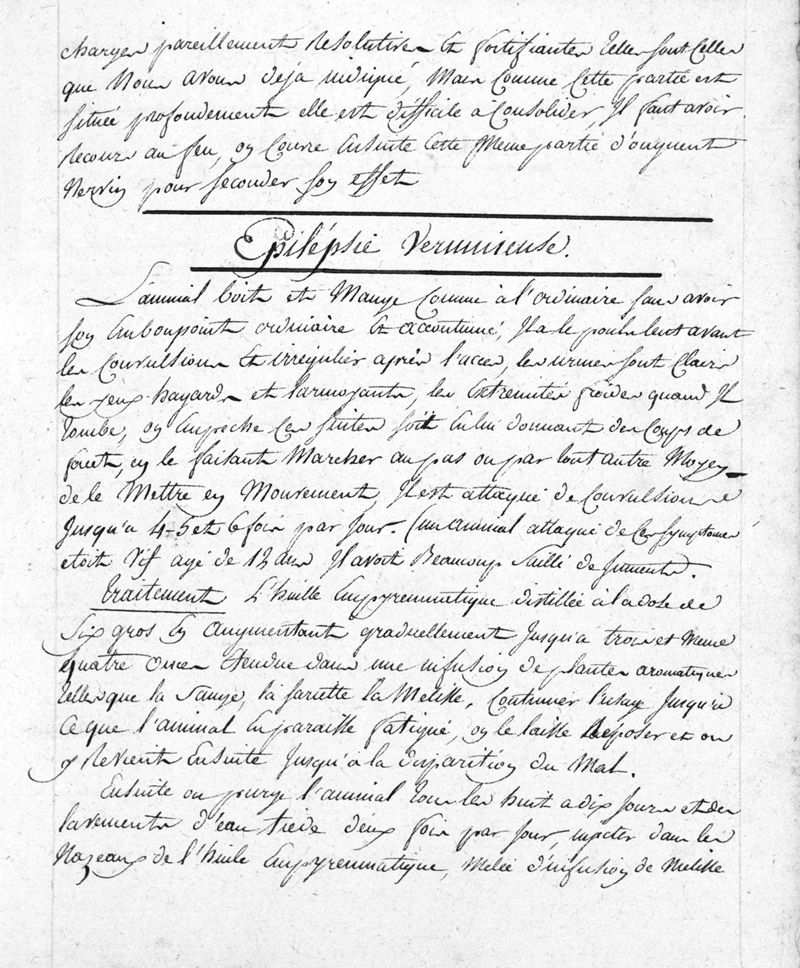 charges pareillement resolutives et fortifiantes telles sont celles
que nous avons deja indiqué, Mais Comme Cette partie est
située profondement elle est difficile a Consolider, Il faut avoir
recours au feu, on Couvre Ensuite Cette Meme partie d'onguent
Nervin pour seconder son effet
Epilépsie Vermineuse.
L'animal boit et Mange Comme à l'ordinaire sans avoir
son Enbonpoint ordinaire et accoutumé, Il a le pouls lent avant
les Convulsions et irrégulier après l'acces, les urines sont Claires
les yeux hagards et larmoyants, les Extremités froides quand Il
tombe, on Enpeche Ces suites soit en lui donnant des Coups de
fouet, en le faisant Marcher au pas ou par tout autre Moyen
de le Mettre en Mouvement, Il est attaqué de Convulsions
Jusqu'a 4-5 et 6 fois par Jour. (un animal attaqué de Ces symptomes
etoit Vif agé de 12 ans Il avoit Beaucoup sailli de Juments.
Traitement L'huille Empyreumatique distillée à la dose de
Six gros En augmentant graduellement Jusqu'a trois et Meme
quatre onces Etendue dans une infusion de plantes aromatiques
telles que la sauge, la sariette la Melisse, Continuer l'usage Jusqu'a
Ce que l'animal En paraisse fatigué, on le laisse Réposer et on
y Revient Ensuite Jusqu'à la disparition du Mal.
Ensuite on purge l'animal tous les huit a dix Jours et des
lavements d'eau tiede deux fois par Jour, injecter dans les
Nazeaux de l'huile Empyreumatique, Melée d'infusion de Melisse